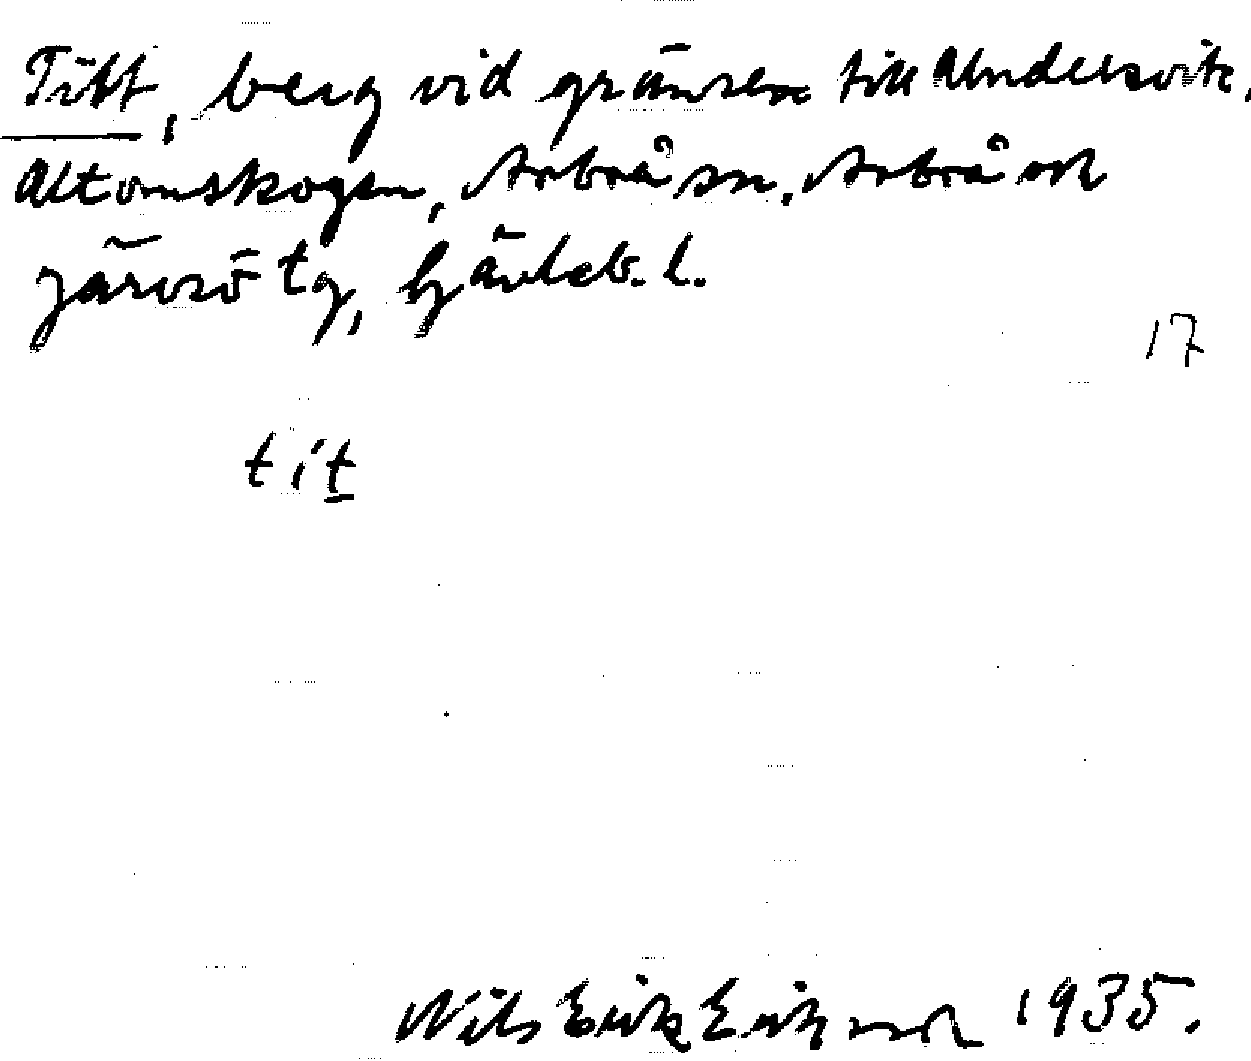 Titt, berg vid gränsen till Undersvik,
Altomskogen, Arbrå sn. Arbrå och
Järvsö tg, Gävleb. l.
17
tit
Nils Erik Eriksson 1935.